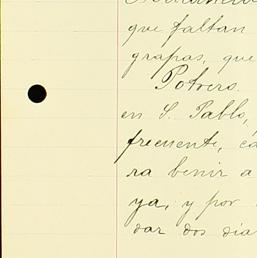 que faltan
grapas, que
Potrero.
en S. Pablo,
frecuente, ca
ra benir a
ya, y por
dar dos dia